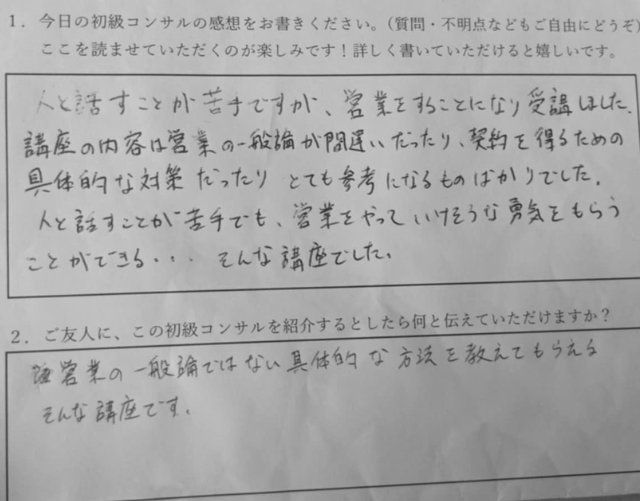 1．今日の初級コンサルの感想をお書きください。（質問・不明点などもご自由にどうぞ）
ここを読ませていただくのが楽しみです！詳しく書いていただけると嬉しいです。
人と話すことが苦手ですが、営業をすることになり受講しました。
講座の内容は営業の一般論が間違いだったり、契約を得るための
具体的な対策だったり とても参考になるものばかりでした。
人と話すことが苦手でも、営業をやっていけそうな勇気をもらう
ことができる・・・ そんな講座でした。
2．ご友人に、この初級コンサルを紹介するとしたら何と伝えていただけますか？
営業の一般論ではない具体的な方法を教えてもらえる
そんな講座です。